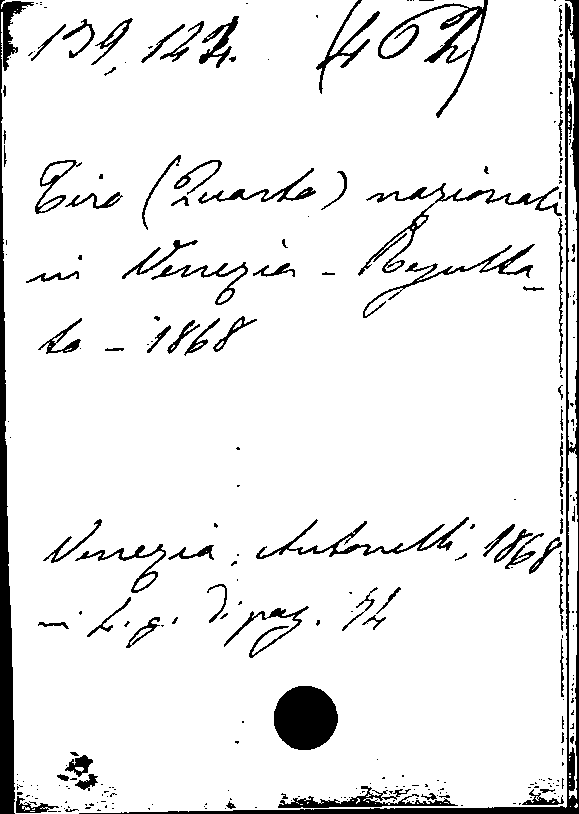 139,124. (402)
Tiro (Quarto) nazionale
in Venezia - Regulta-
to - 1868
Venezia, Antonelli, 1868
in 4. g. di pag. 74